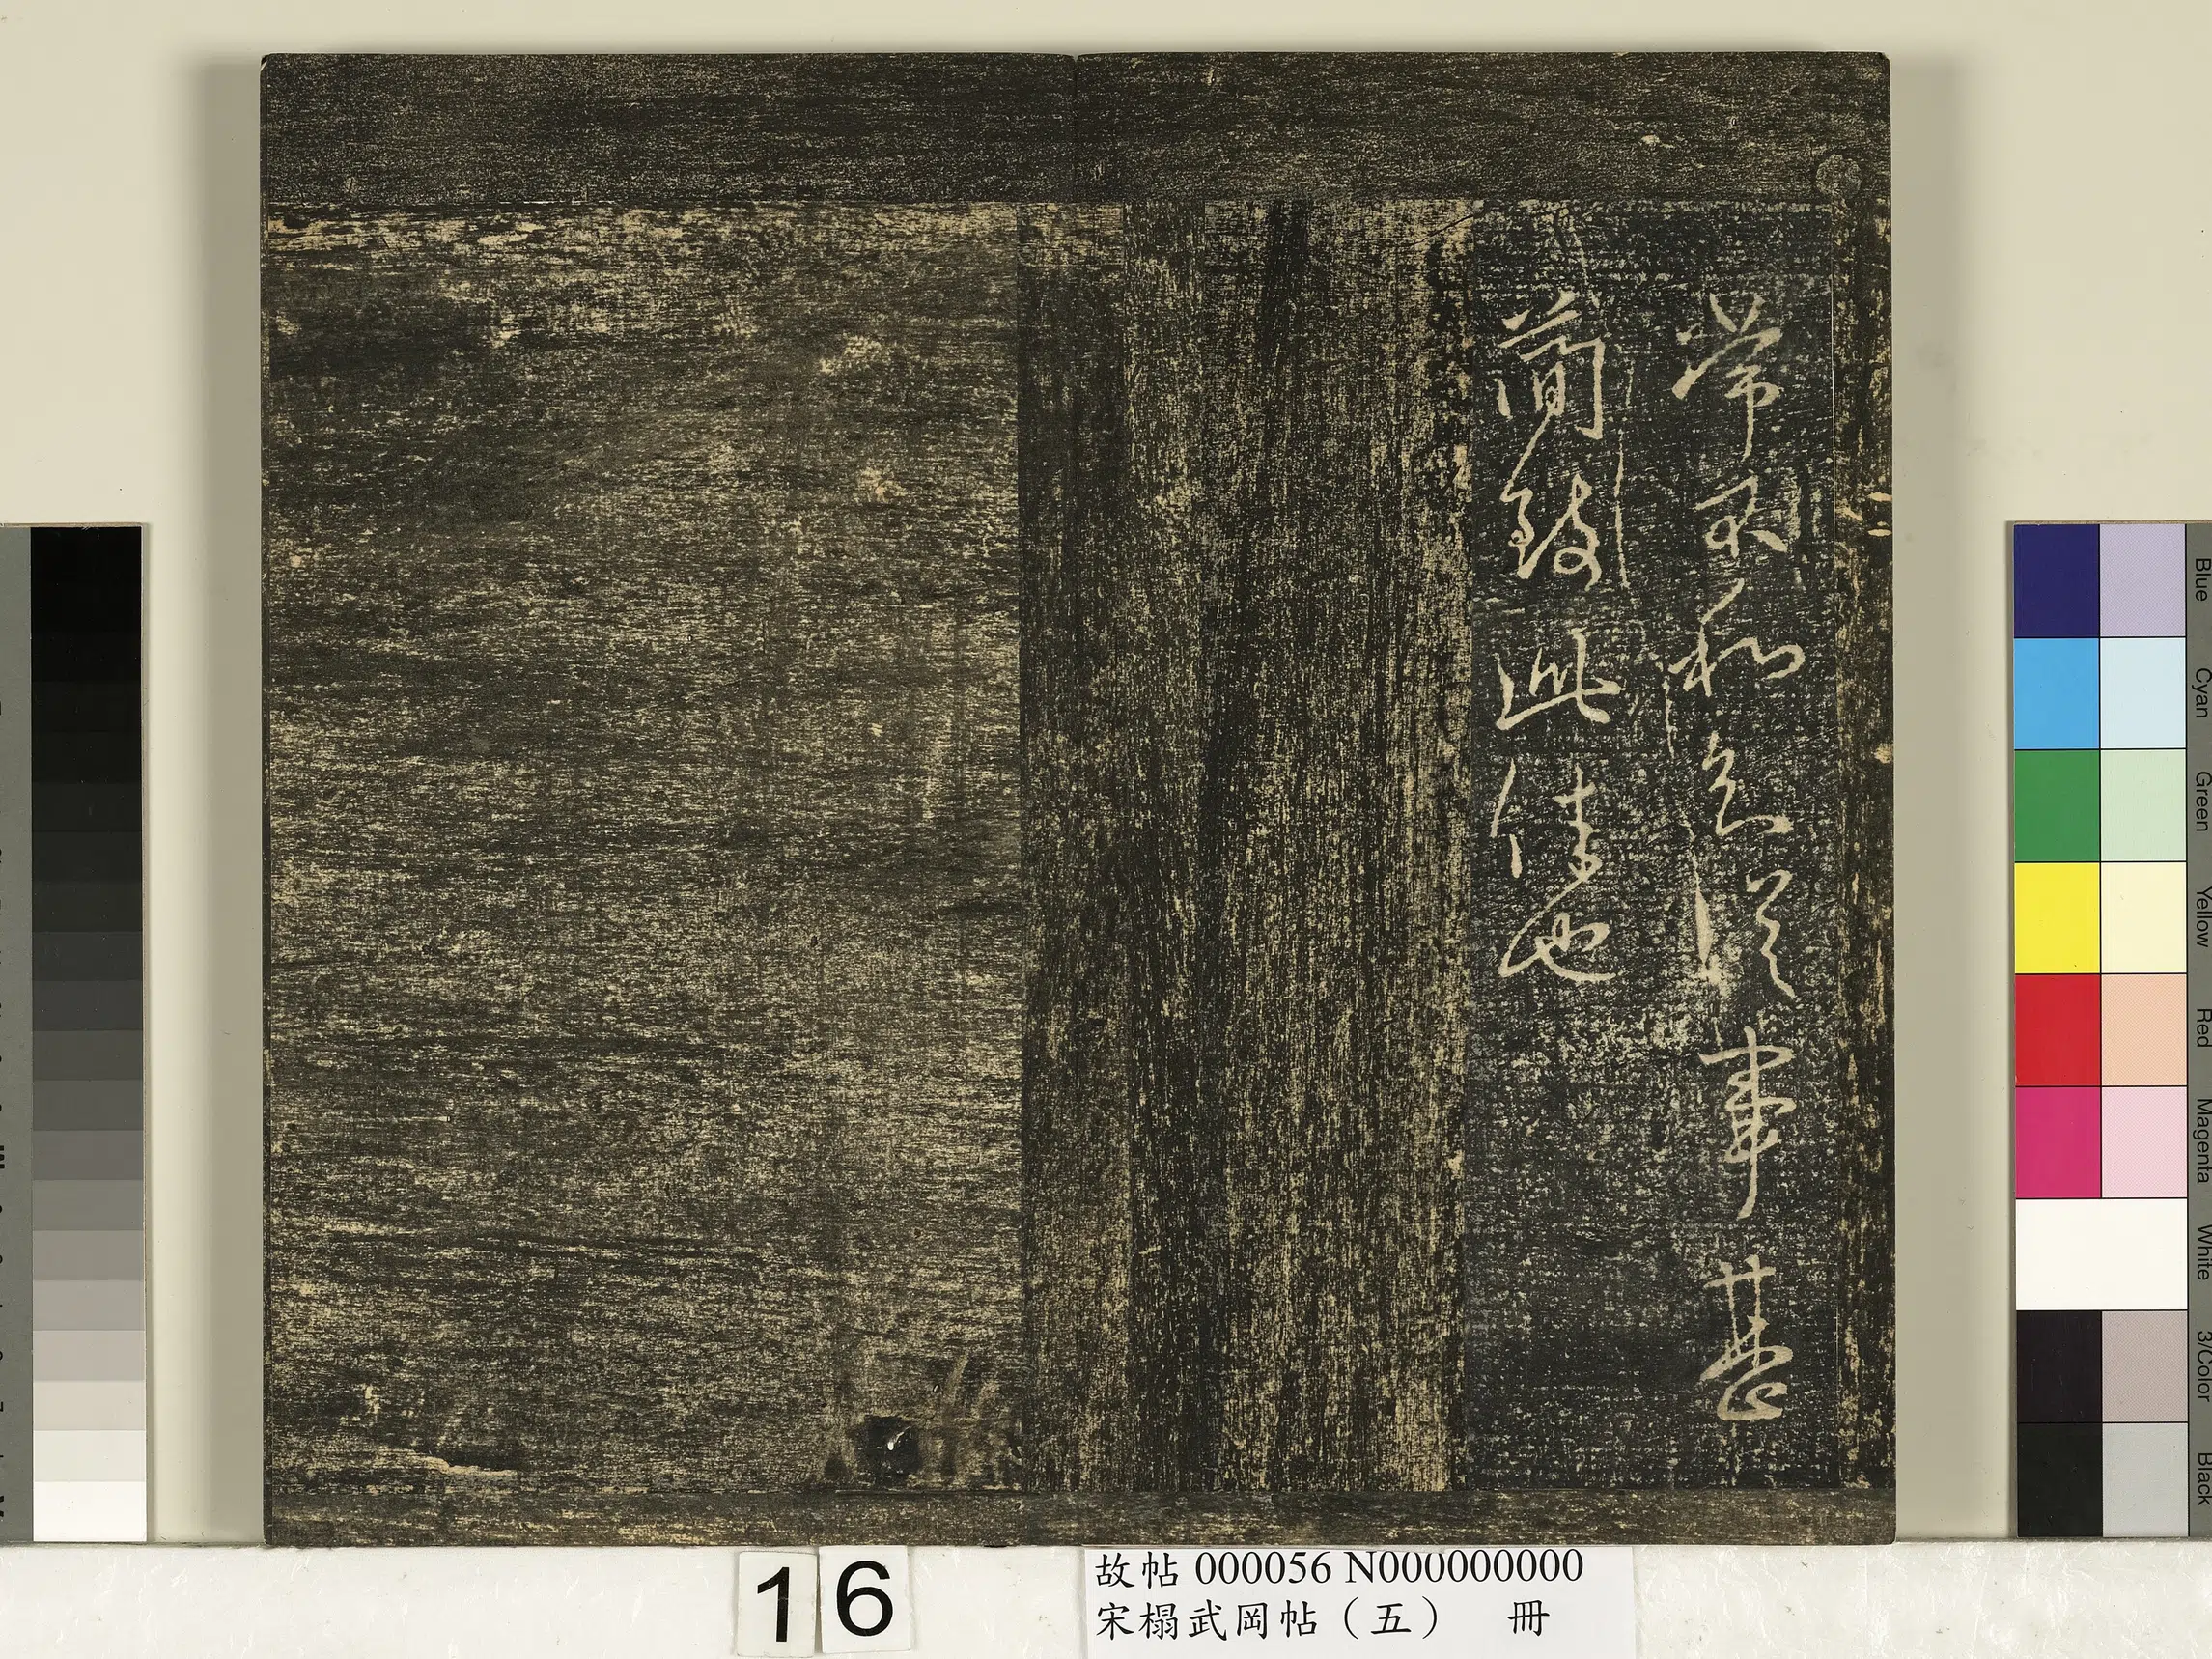 常不和從事甚
簡致此佳也
16
故帖 000056 N000000000
宋榻武岡帖（五） 冊
Blue
Cyan
Green
Yellow
Red
Magenta
White
3/Color
Black